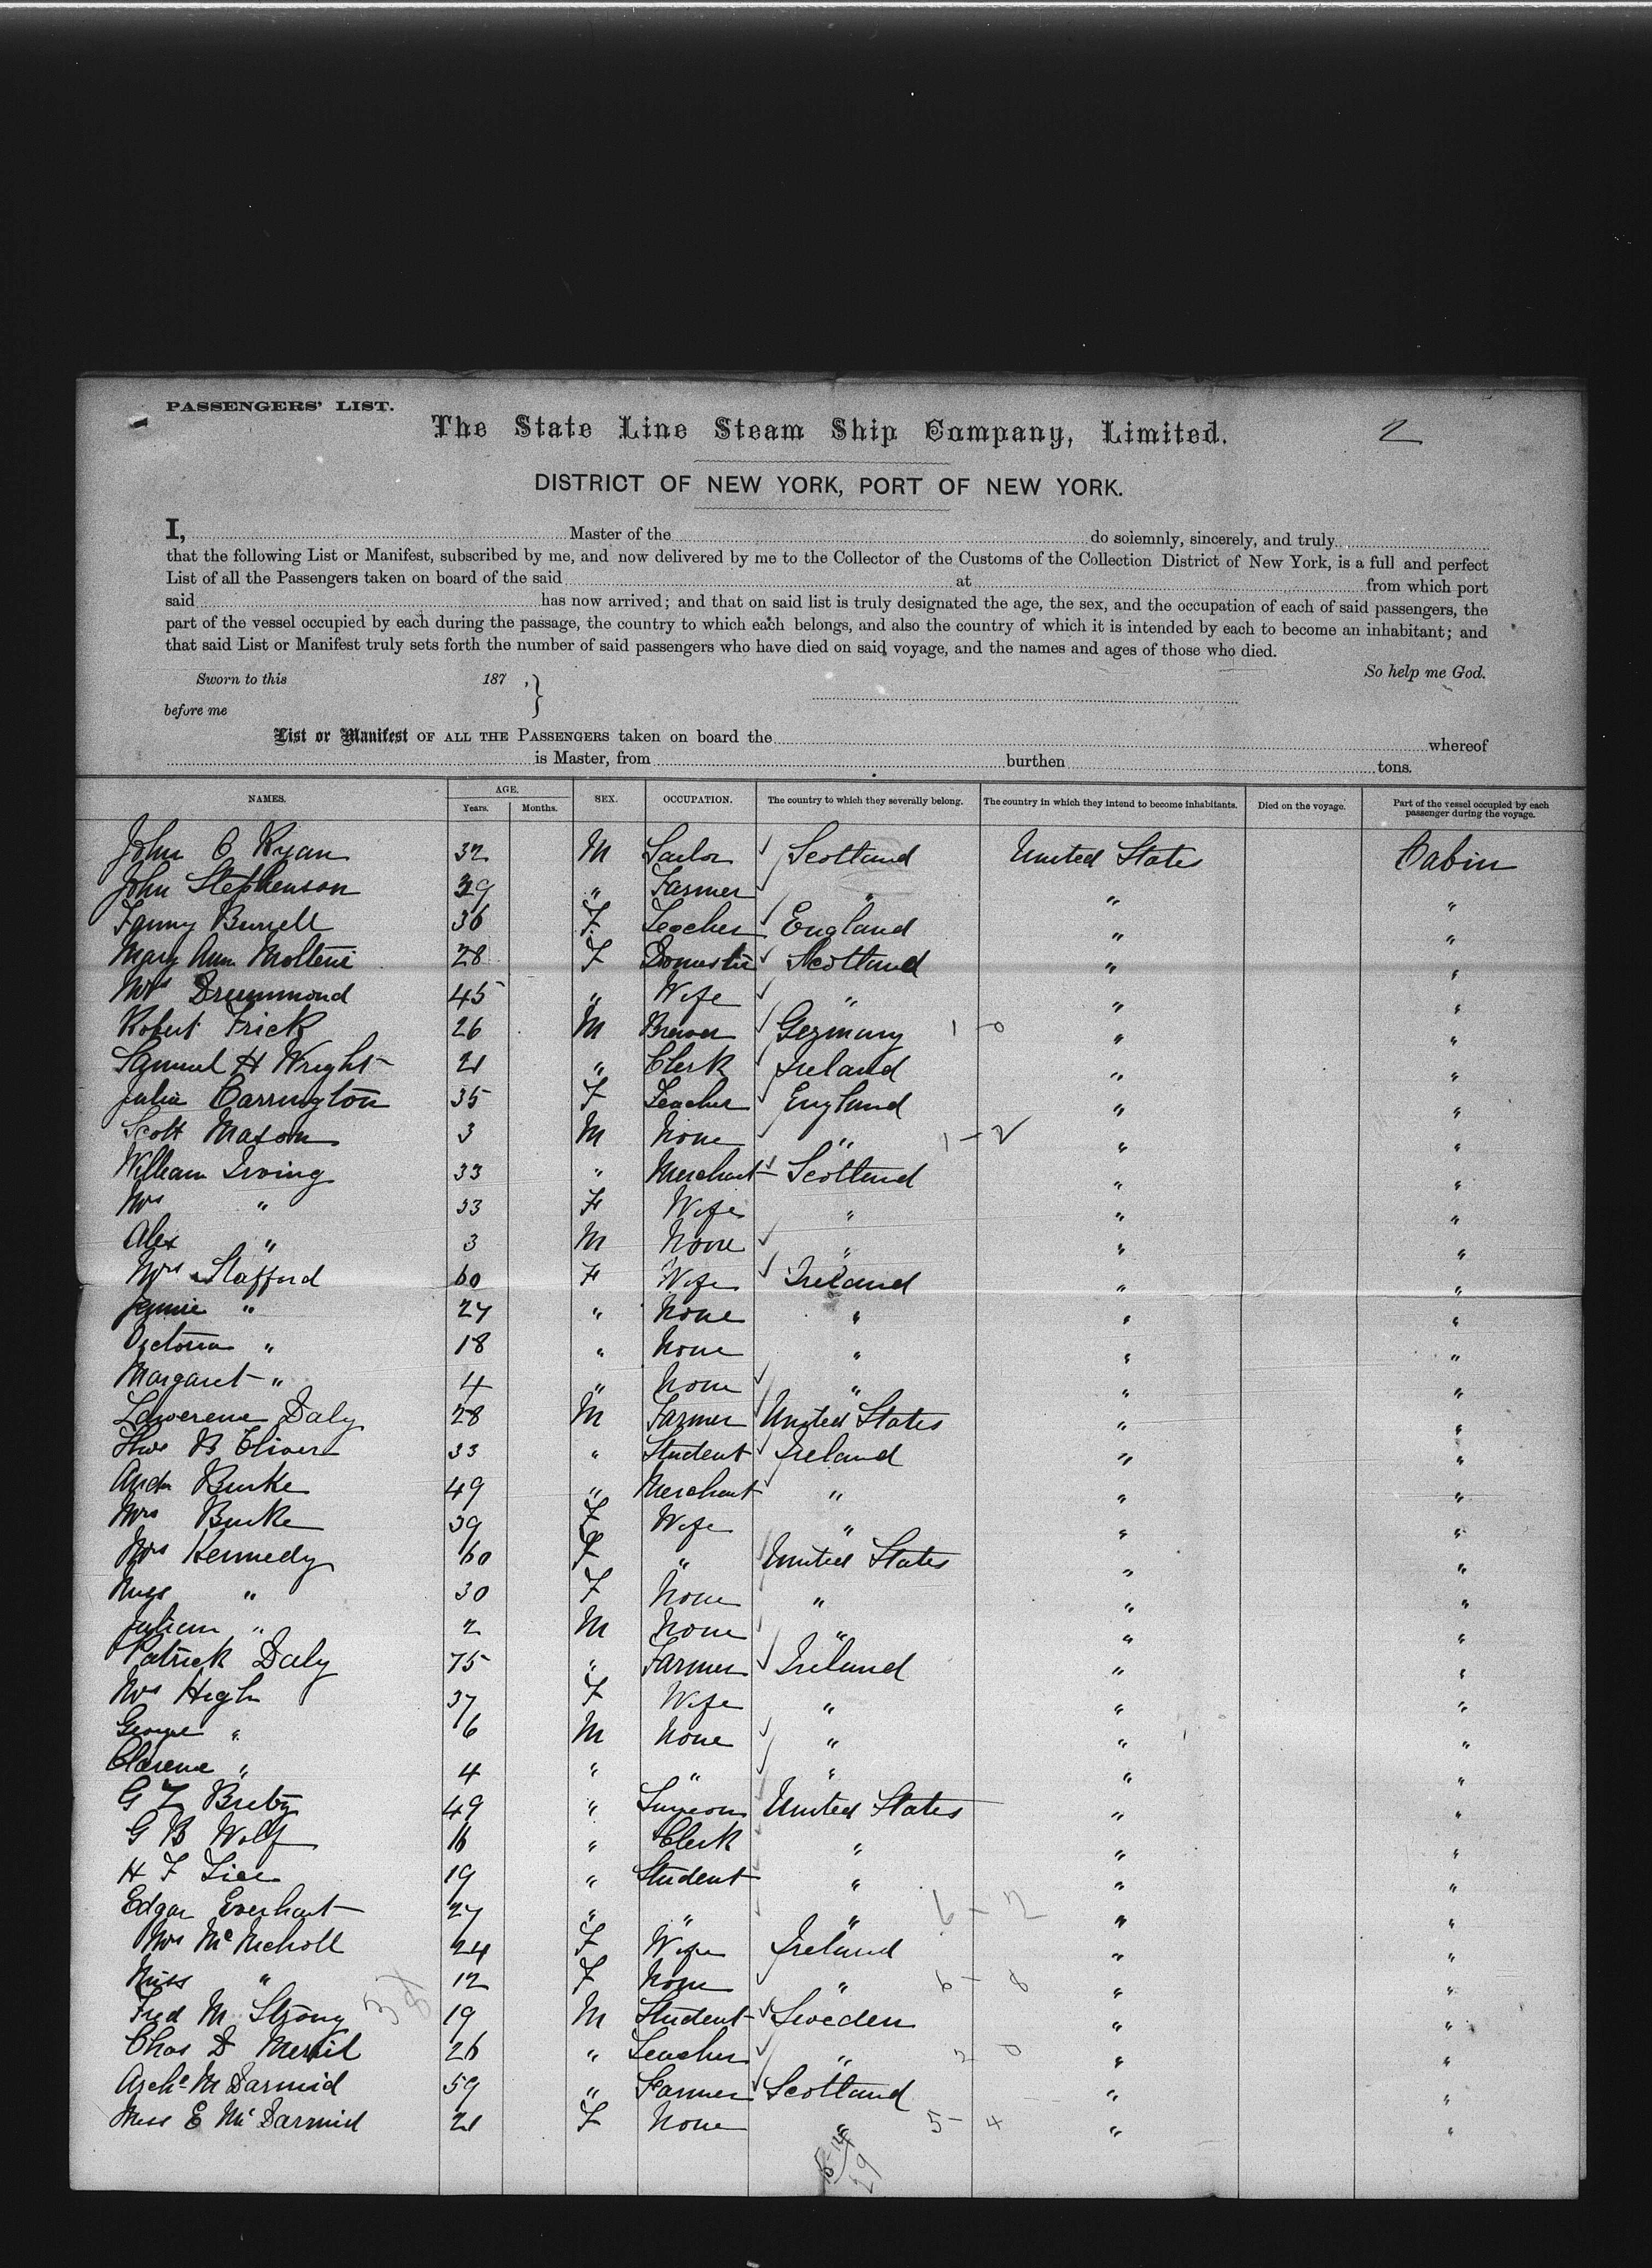 PASSENGERS' LIST.
The State Line Steam Ship Company, Limited. 2
DISTRICT OF NEW YORK, PORT OF NEW YORK.
I, Master of the do solemnly, sincerely, and truly
that the following List or Manifest, subscribed by me, and now delivered by me to the Collector of the Customs of the Collection District of New York, is a full and perfect
List of all the Passengers taken on board of the said at from which port
said has now arrived; and that on said list is truly designated the age, the sex, and the occupation of each of said passengers, the
part of the vessel occupied by each during the passage, the country to which each belongs, and also the country of which it is intended by each to become an inhabitant; and
that said List or Manifest truly sets forth the number of said passengers who have died on said voyage, and the names and ages of those who died.
So help me God.
Sworn to this 187 ,
before me
List or Manifest OF ALL THE PASSENGERS taken on board the whereof
is Master, from burthen tons.
NAMES. AGE. Years. Months. SEX. OCCUPATION. The country to which they severally belong. The country in which they intend to become inhabitants. Died on the voyage. Part of the vessel occupied by each passenger during the voyage.
John O Ryan 32 M Sailor Scotland United States Cabin
John Stephenson 39 " Farmer " " "
Fanny Burrell 36 F Teacher England " "
Mary Ann 28 F Domestic Scotland " "
Mrs Drummond 45 " Wife " " "
Robert Frick 26 M Brewer Germany 1 - 0 " "
Samuel H Wright 21 " Clerk Ireland " "
Julia Carrington 35 F Teacher England " "
Scott Matson 3 M None " 1 - 2 " "
William Irving 33 " Merchant Scotland " "
Mrs " 33 F Wife " " "
Alex " 3 M None " " "
Mrs Stafford 60 F Wife Ireland " "
Jennie " 27 " None " " "
Victoria " 18 " None " " "
Margaret " 4 " None " " "
Lawerence Daly 28 M Farmer United States " "
Thos B Oliver 33 " Student Ireland " "
Andw Burke 49 " Merchant " " "
Mrs Burke 39 F Wife " " "
Mrs Kennedy 60 F " United States " "
Miss " 30 F None " " "
Julian " 2 M None " " "
Patrick Daly 75 " Farmer Ireland " "
Mrs High 37 F Wife " " "
George " 6 M None " " "
Clarence " 4 " " " " "
G 49 " Surgeon United States " "
G B Wolf 16 " Clerk " " "
H F 19 " Student " " "
Edgar Everhart 27 " " " 6 - 2 " "
Mrs McNicholl 24 F Wife Ireland " "
Miss " 12 F None " 6 - 8 " "
Fred M Strong 19 M Student Sweden " "
Chas D 26 " Teacher " 2 0 " "
Archd McDarmid 59 " Farmer Scotland " "
Miss E McDarmid 21 F None " 5 - 4 " "